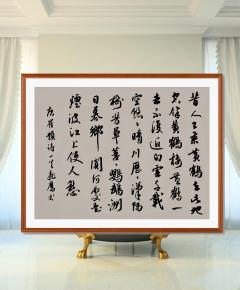 昔人已乘黄鶴去此地
空餘黄鶴樓黄鶴一
去不復返白雲千載
空悠々晴川歷々漢陽
樹芳草萋々鸚鵡洲
日暮鄉關何處是
煙波江上使人愁
唐崔顥詩一首 書